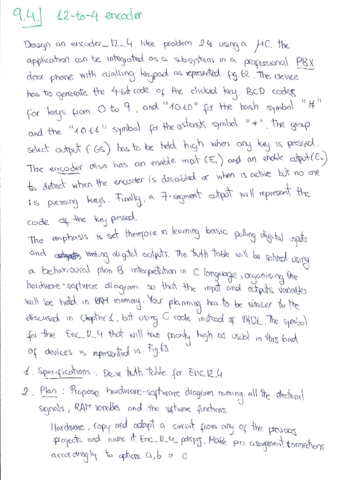 9.4. | 12-to-4 encoder
Design an encoder_12_4 like problem 2.4 using a µC. the
application can be integrated as a subsystem in a professional PBX
door phone with dialling keypad as represented fig. 62. The device
has to generate the 4-bit code of the clicked key. BCD codes
for keys from 0 to 9, and "1010" for the hash symbol "#"
and the "1011" symbol for the asterisk symbol "*". The group
select output (GS) has to be held high when any key is pressed.
The encoder also has an enable input (Ei) and an enable output (Eo)
to detect when the encoder is disabled or when is active but no one
is pressing keys. Finally, a 7-segment output will represent the
code of the key pressed.
The emphasis is set therefore in learning basic polling digital inputs
and writing digital outputs. The truth table will be solved using
a behavioural plan B interpretation in C language, organising the
hardware-software diagram so that the input and outputs variables
will be held in RAM memory. Your planning has to be similar to the
discussed in Chapter 1, but using C code instead of VHDL. The symbol
for the Enc_12_4 that will have priority high as usual in this kind
of devices is represented in Fig 63
1. Specifications: Draw truth table for Enc_12_4
2. Plan: Propose hardware-software diagram naming all the electrical
signals, RAM variables and the software functions.
Hardware. Copy and adapt a circuit from any of the previous
projects and name it Enc_12_4.pdsprj. Make pin assignment connections
accordingly to options a, b or c